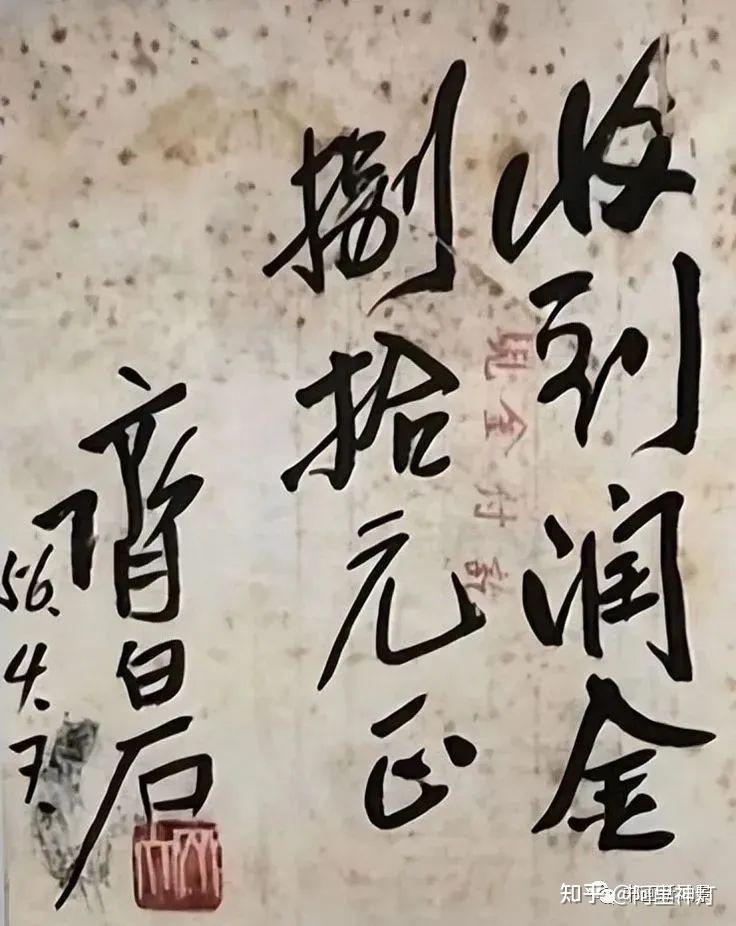 收到润金
現金付訖
捌拾元正
齊白石
56.4.7.
知乎 @阿里神灯